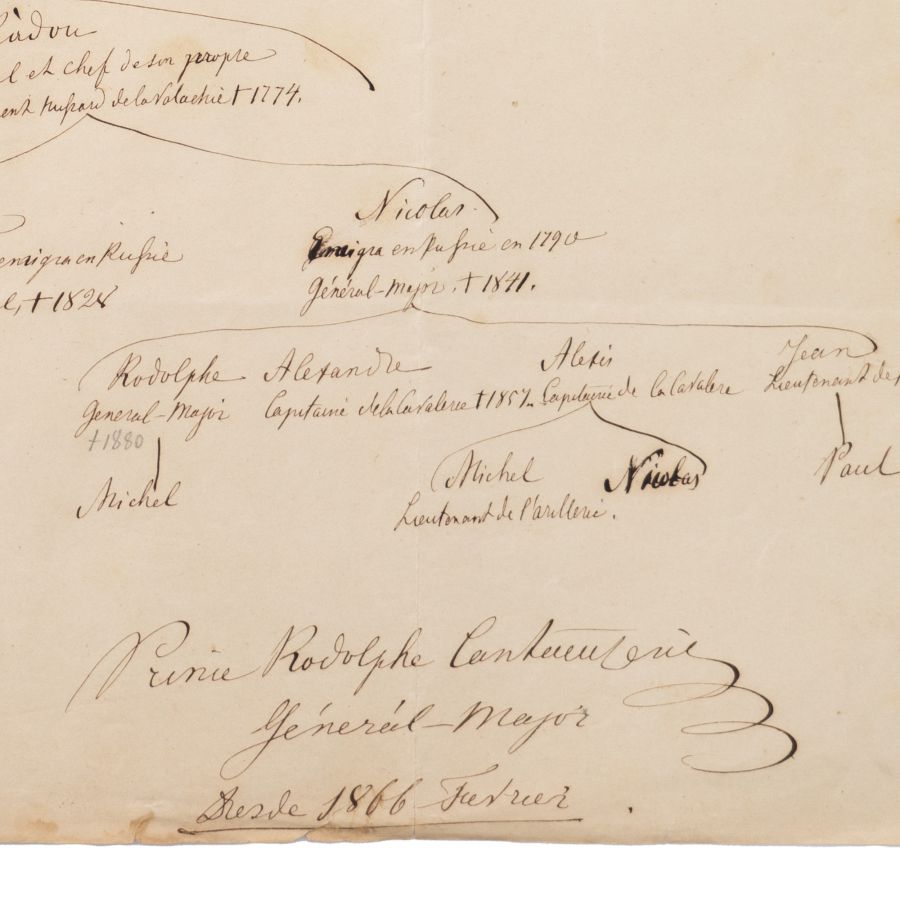 l et chef de son propre
ent hussard de la Valachie † 1774.
Nicolas
emigra en Russie
Emigra en Russie en 1790
l, † 1828
Général-Major, † 1841.
Rodolphe Alexandre Alexis Jean
General-Major Capitaine de la Cavalerie † 1857. Capitaine de la Cavalere Lieutenant de
† 1880
Michel Michel Nicolas Paul
Lieutenant de l'artillerie.
Prince Rodolphe
Général-Major
Dresde 1866 Fevrier.